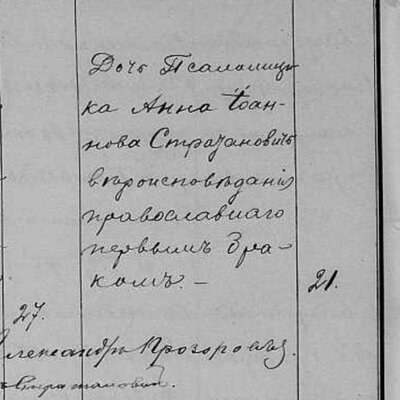 Дочь Псаломщи-
ка Анна Іоан-
нова Стратановичъ
вѣроисповѣданія
православнаго
первымъ бра-
комъ. –
21.
27.
Александръ Прозоровъ.